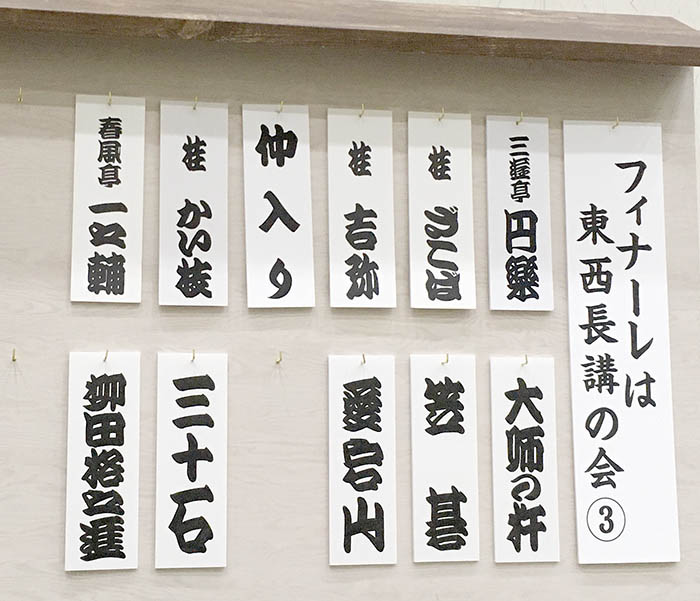 フィナーレは
東西長講の会③
三遊亭 円樂
大師の杵
桂 ざこば
笠碁
桂 吉弥
愛宕山
仲入り
桂 かい枝
三十石
春風亭 一之輔
柳田格之進